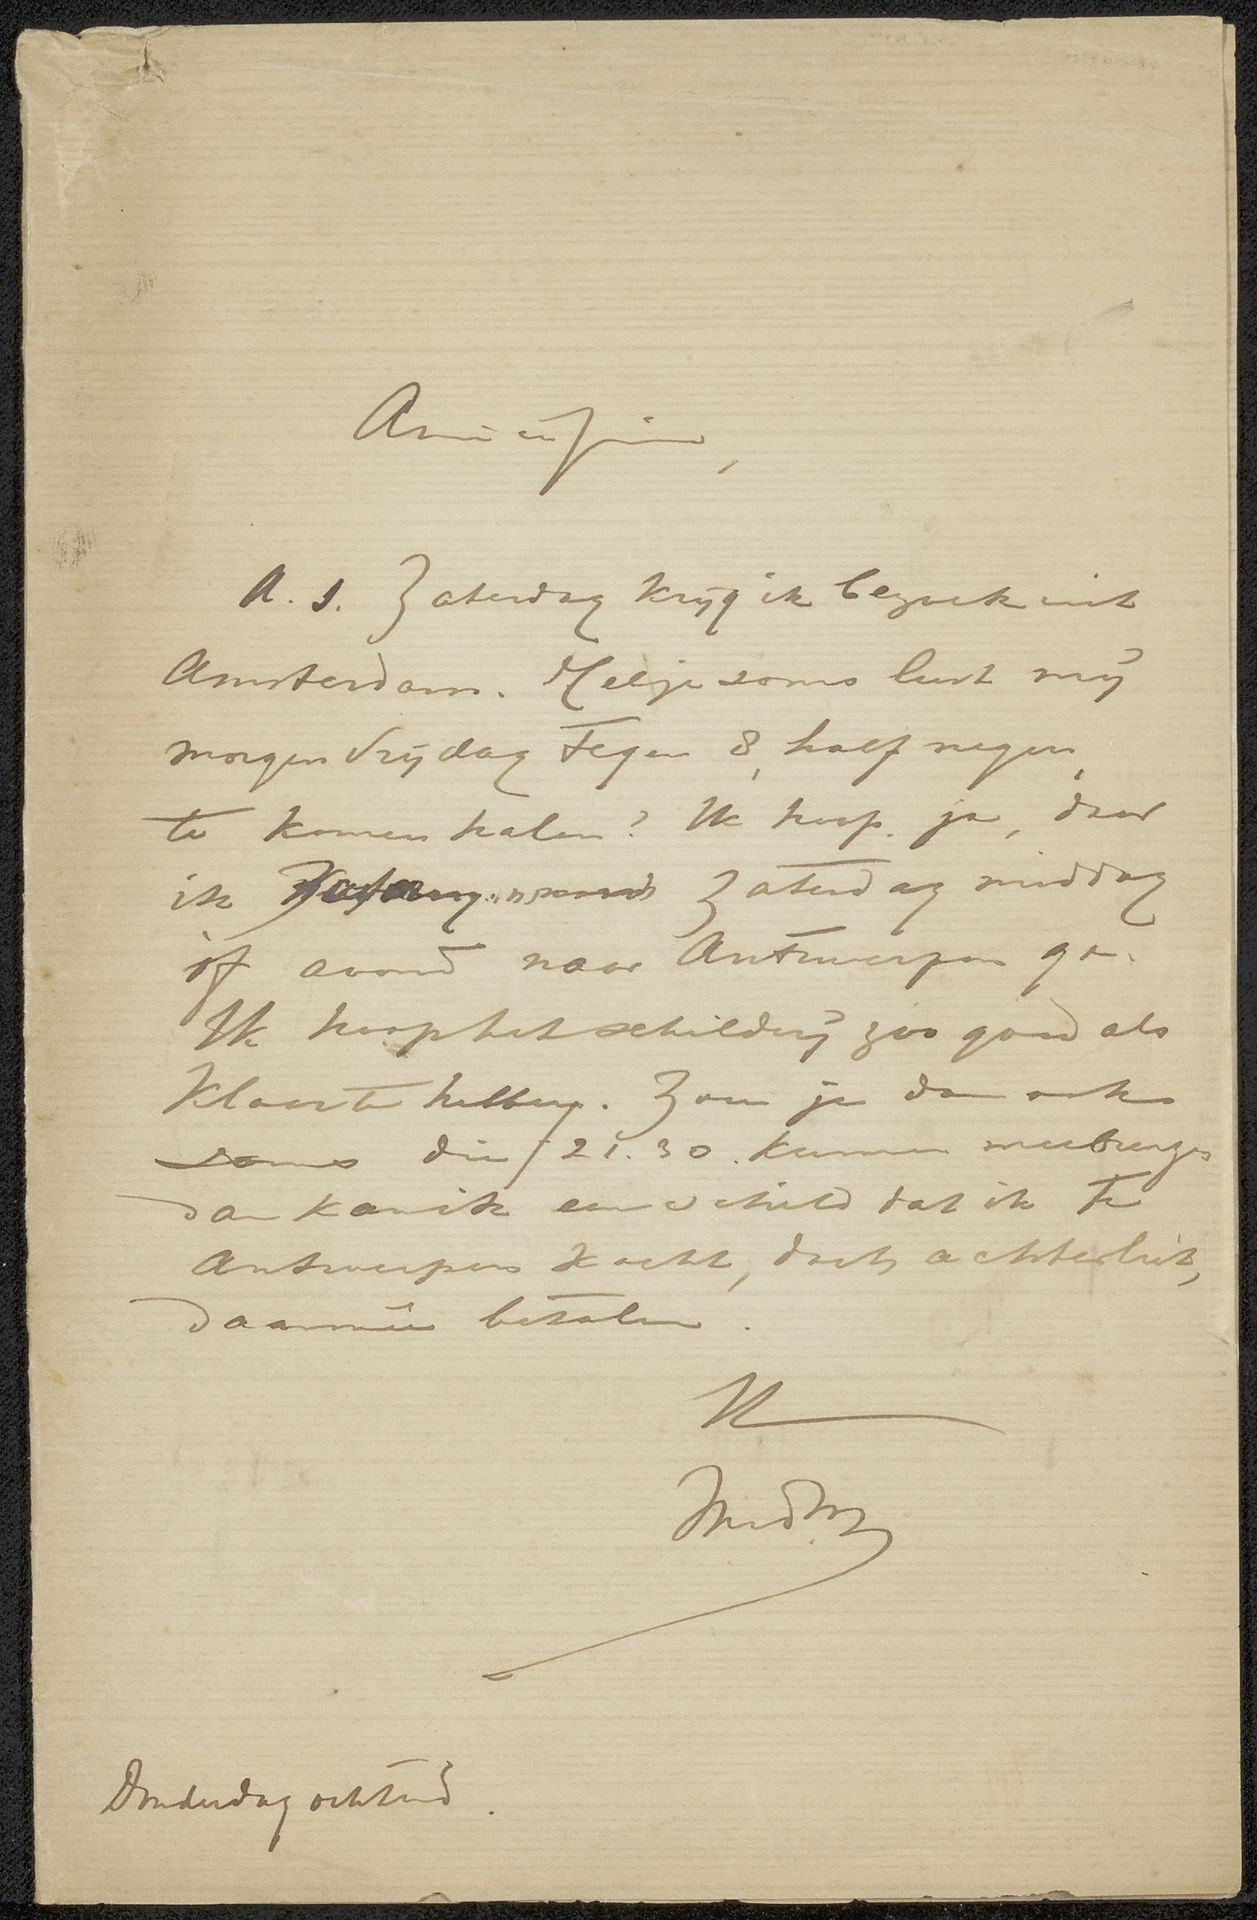 Amicissime,
A. s. Zaterdag krijg ik bezoek uit
Amsterdam. Heb je soms lust mij
morgen Vrijdag tegen 8, half negen,
te komen halen? Ik hoop ja, daar
ik Zaterdag middag
óf avond naar Antwerpen ga.
Ik hoop het schilderij zoo goed als
klaar te hebben. Zou je dan ook
soms die ƒ 21.30 kunnen meebrengen
dan kan ik een schuld dat ik te
Antwerpen kocht, doch achterliet,
daarmeê betalen.
Donderdag ochtend.